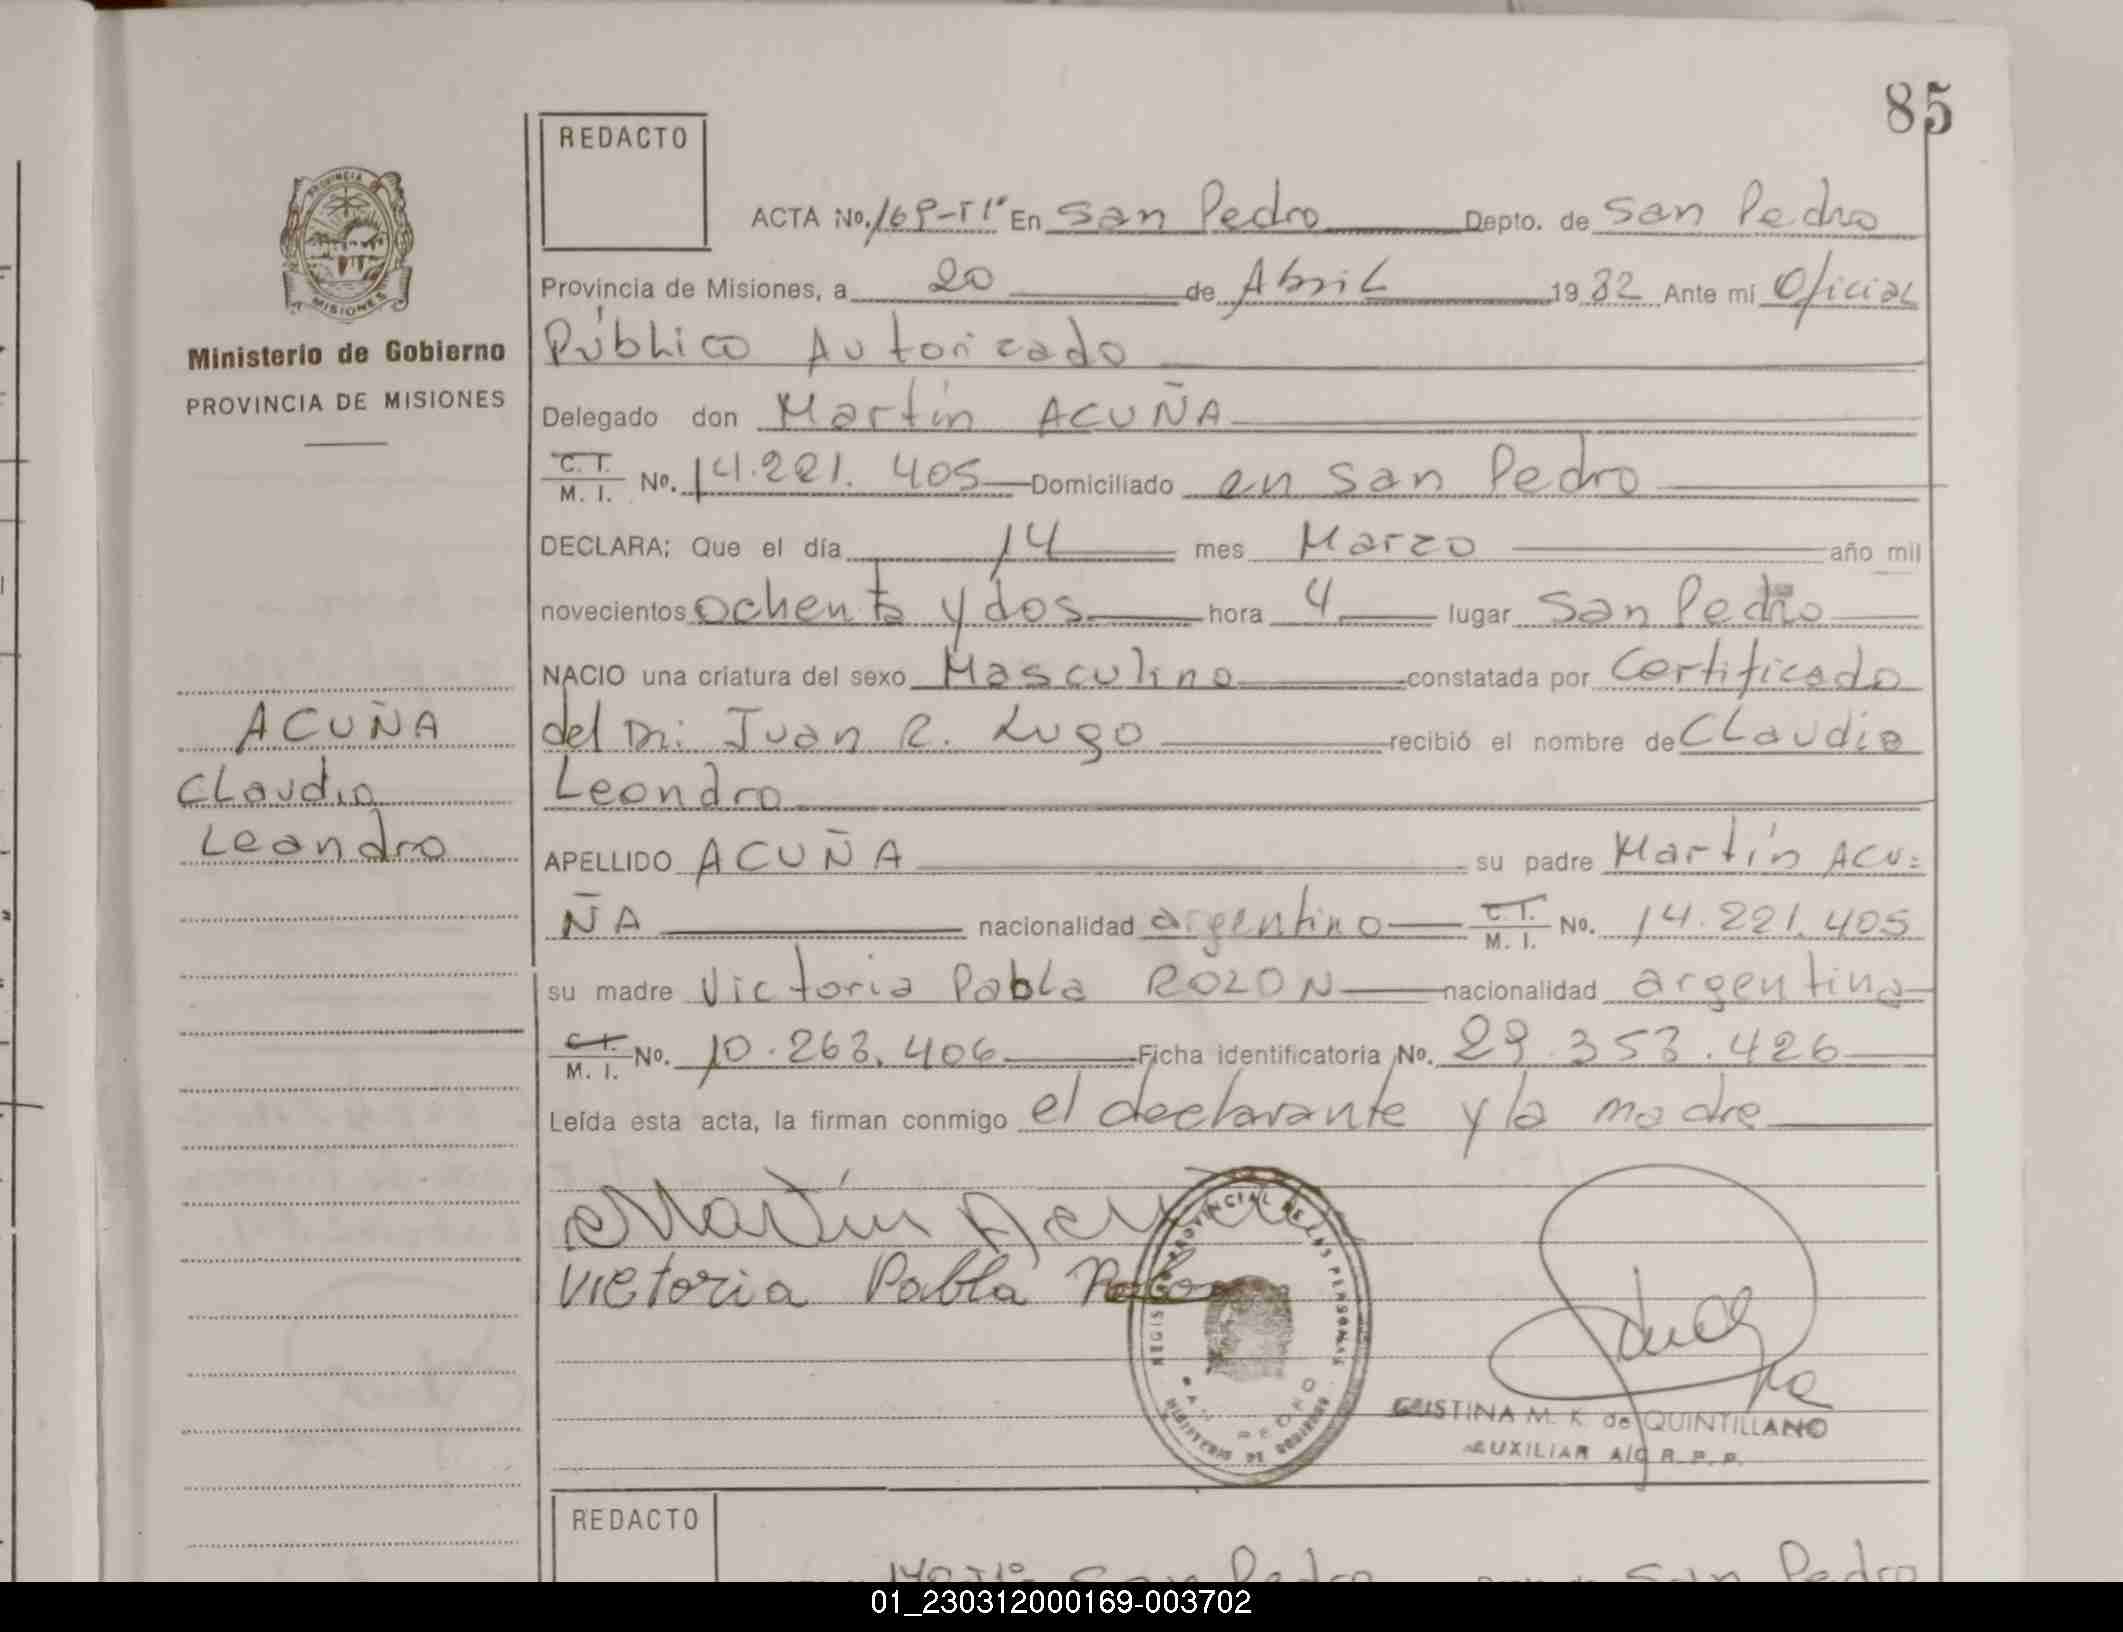 85
REDACTO
ACTA No. 169-T1º En San Pedro Depto. de San Pedro
Provincia de Misiones, a 20 de Abril 19 82 Ante mi Oficial
Público Autorizado
Delegado don Martín ACUÑA
C. I.
M. I. No. 14.221.405 Domiciliado en San Pedro
DECLARA; Que el día 14 mes Marzo año mil
novecientos ochenta y dos hora 4 lugar San Pedro
NACIO una criatura del sexo Masculino constatada por Certificado
del Dr. Juan R. Lugo recibió el nombre de Claudio
Leandro
APELLIDO ACUÑA su padre Martín ACU=
ÑA nacionalidad argentino C. I.
M. I. No. 14.221.405
su madre Victoria Pabla ROLON nacionalidad argentina
C. I.
M. I. No. 10.263.406 Ficha identificatoria No. 29.353.426
Leída esta acta, la firman conmigo el declarante y la madre
PROVINCIA
MISIONES
Ministerio de Gobierno
PROVINCIA DE MISIONES
ACUÑA
Claudio
Leandro
Martín Acuña
Victoria Pabla Rolon
REGISTRO PROVINCIAL DE LAS PERSONAS
SAN PEDRO
MINISTERIO DE GOBIERNO
CRISTINA M. K. de QUINTILLANO
AUXILIAR A/C R. P. P.
REDACTO
San Pedro San Pedro
01_230312000169-003702